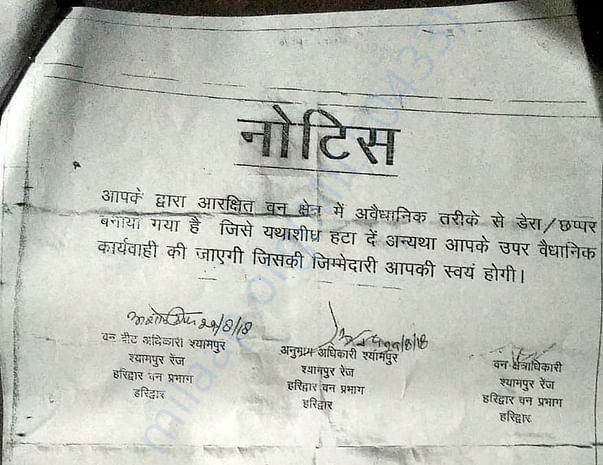 नोटिस
आपके द्वारा आरक्षित वन क्षेन में अवैधानिक तरीके से डेरा/छप्पर
बनाया गया है जिसे यथाशीघ्र हटा दें अन्यथा आपके उपर वैधानिक
कार्यवाही की जाएगी जिसकी जिम्मेदारी आपकी स्वयं होगी।
29/8/18
वन बीट अधिकारी श्यामपुर
श्यामपुर रेंज
हरिद्वार वन प्रभाग
हरिद्वार
अनुभाग अधिकारी श्यामपुर
श्यामपुर रेंज
हरिद्वार वन प्रभाग
हरिद्वार
वन क्षेत्राधिकारी
श्यामपुर रेंज
हरिद्वार वन प्रभाग
हरिद्वार